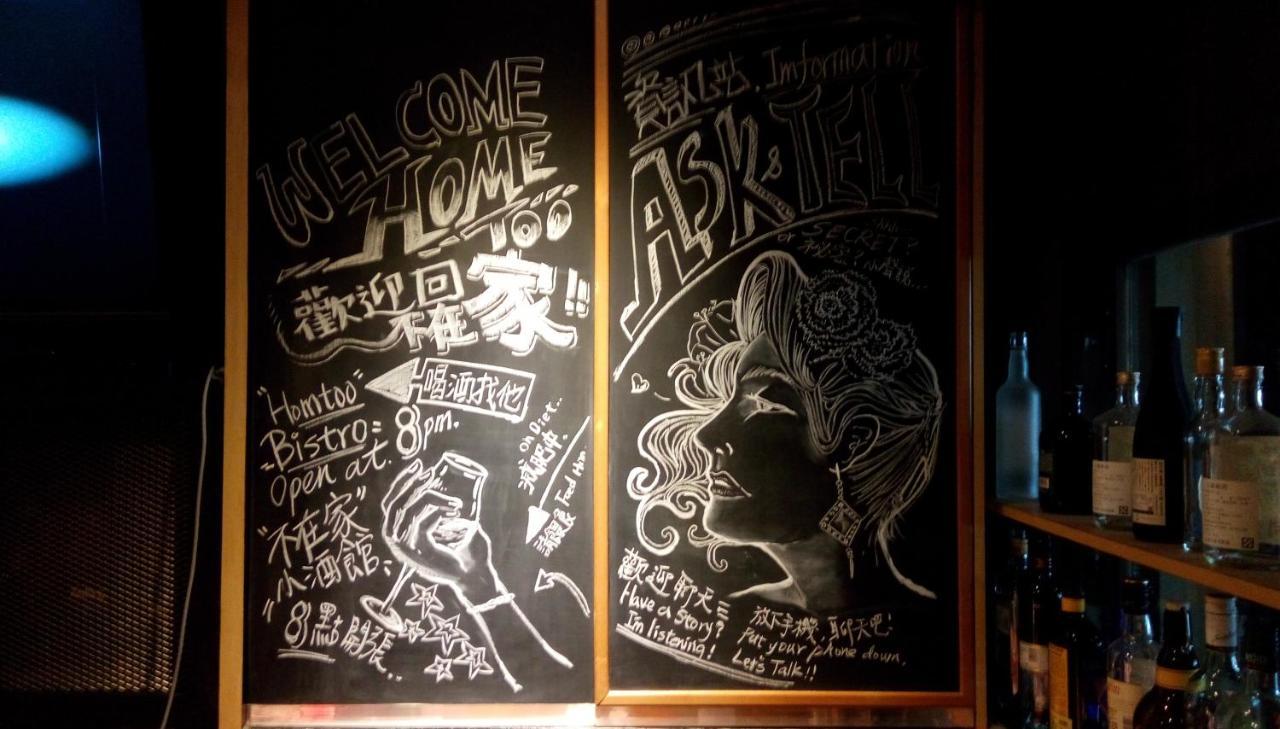 WELCOME
HOME
TOO
歡迎回家!!
不在
喝酒找他
"Homtoo"
Bistro
Open at 8pm.
"不在家"
小酒館
8點開張..
on Diet..
減肥中.
請餵食 Feed Him
資訊站. Imformation
ASK & TELL
or SECRET?
秘密? 小聲說...
歡迎聊天
Have a Story?
I'm listening!
放下手機, 聊天吧!
Put your phone down,
Let's Talk!!